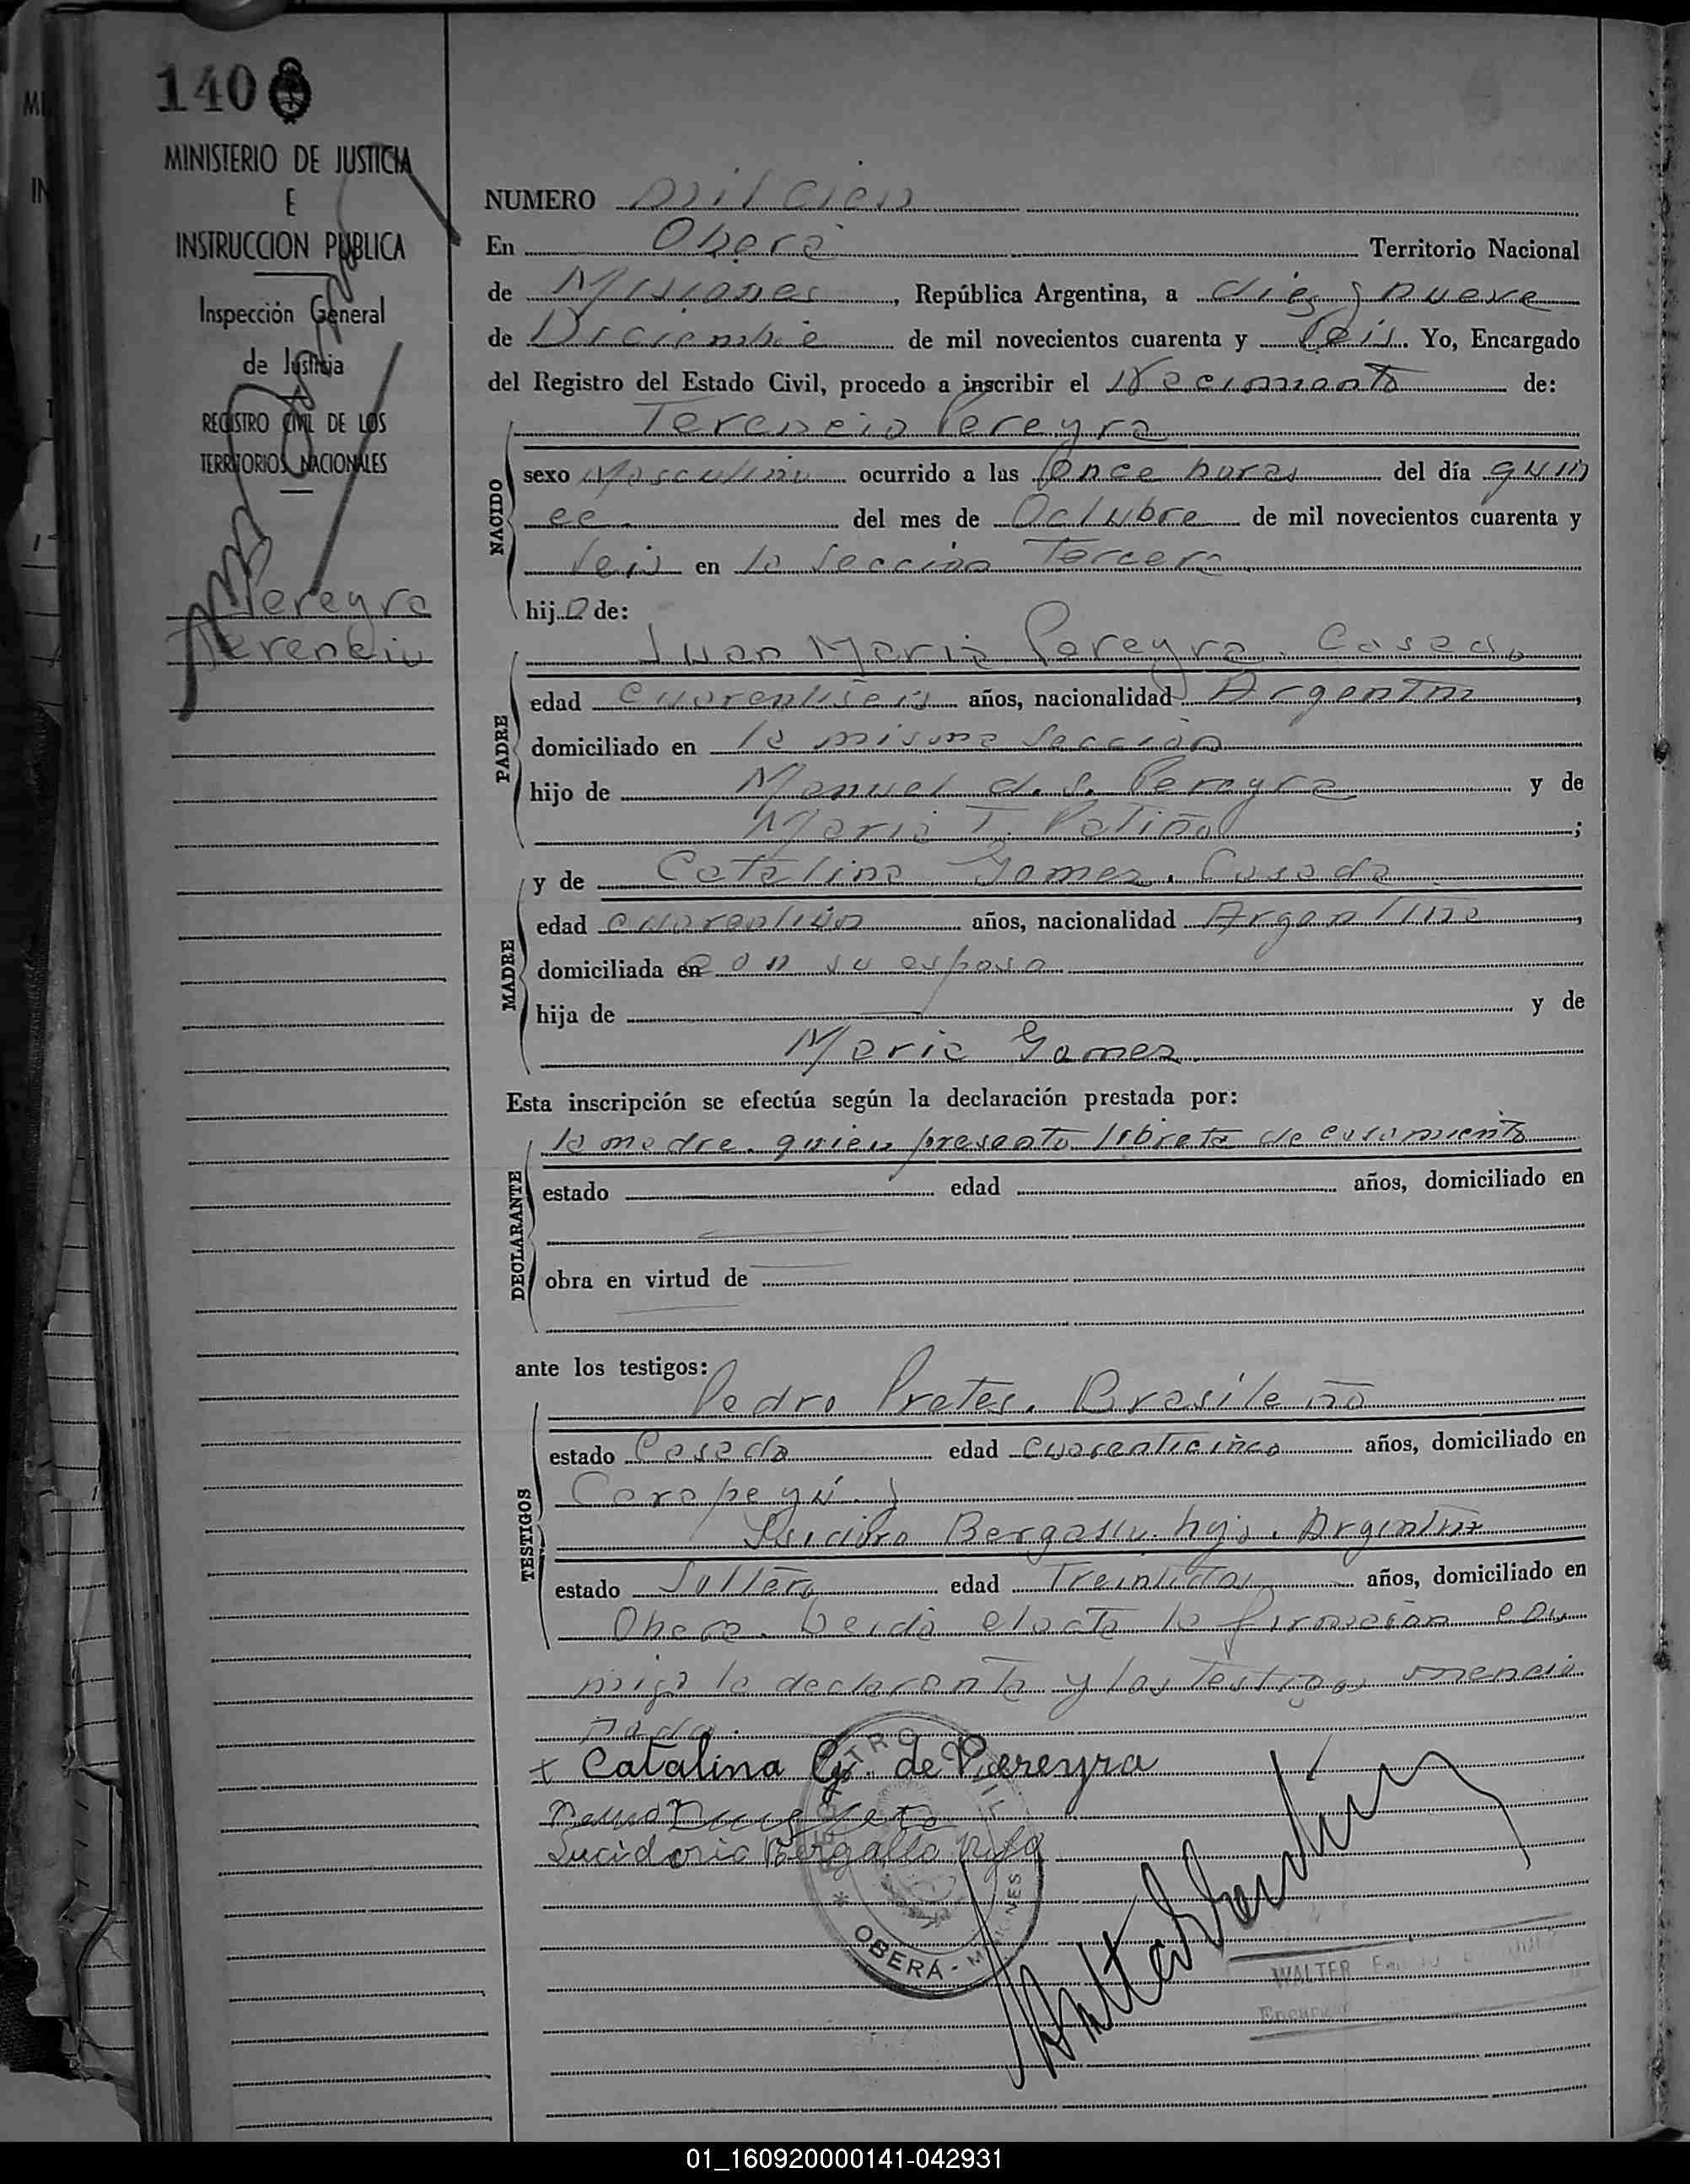 140
MINISTERIO DE JUSTICIA
E
INSTRUCCION PUBLICA
Inspección General
de Justicia
REGISTRO CIVIL DE LOS
TERRITORIOS NACIONALES
Pereyra
Terencio
NUMERO mil cien
En Oberá Territorio Nacional
de Misiones, República Argentina, a diez y nueve
de Diciembre de mil novecientos cuarenta y seis. Yo, Encargado
del Registro del Estado Civil, procedo a inscribir el Nacimiento de:
Terencio Pereyra
NACIDO
sexo Masculino ocurrido a las once horas del día quin
ce. del mes de Octubre de mil novecientos cuarenta y
seis en la Sección Tercera
hijo de:
Juan Maria Pereyra. Casado
PADRE
edad cuarentiseis años, nacionalidad Argentino,
domiciliado en la misma Sección
hijo de Manuel d. S. Pereyra y de
Maria T. Patiño;
MADRE
y de Catalina Gomez. Casada
edad cuarentiun años, nacionalidad Argentina,
domiciliada en con su esposo
hija de y de
Maria Gomez.
Esta inscripción se efectúa según la declaración prestada por:
DECLARANTE
la madre. quien presento libreta de casamiento
estado edad años, domiciliado en
obra en virtud de
ante los testigos:
TESTIGOS
Pedro Prates. Brasileño
estado Casado edad cuarenticinco años, domiciliado en
Carapeyú. y
Bergallo. hijo. Argentino
estado Soltero edad Treintidos años, domiciliado en
Obera. Leida el acta la firmaron con
migo la declarante y los testigos mencio
nado.
+ Catalina G. de Pereyra
Bergallo hijo
REGISTRO CIVIL
* OBERÁ - MISIONES
WALTER
Encargado
01_160920000141-042931